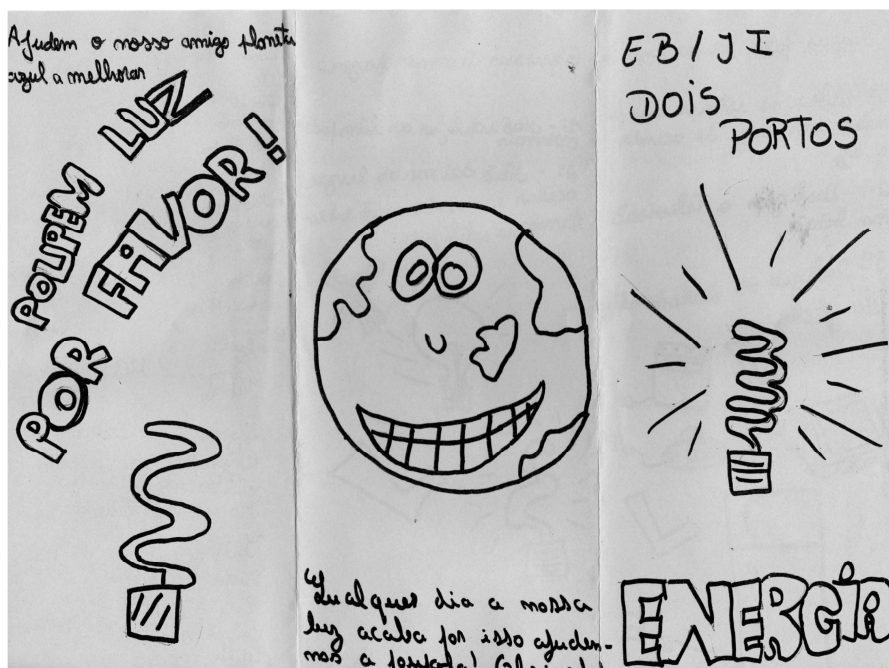 Ajudem o nosso amigo planeta
azul a melhorar
POUPEM LUZ
POR FAVOR!
Qualquer dia a nossa
luz acaba por isso ajudem-
nos a poupada! Obrigado!
EB/JI
DOIS
PORTOS
ENERGÍA